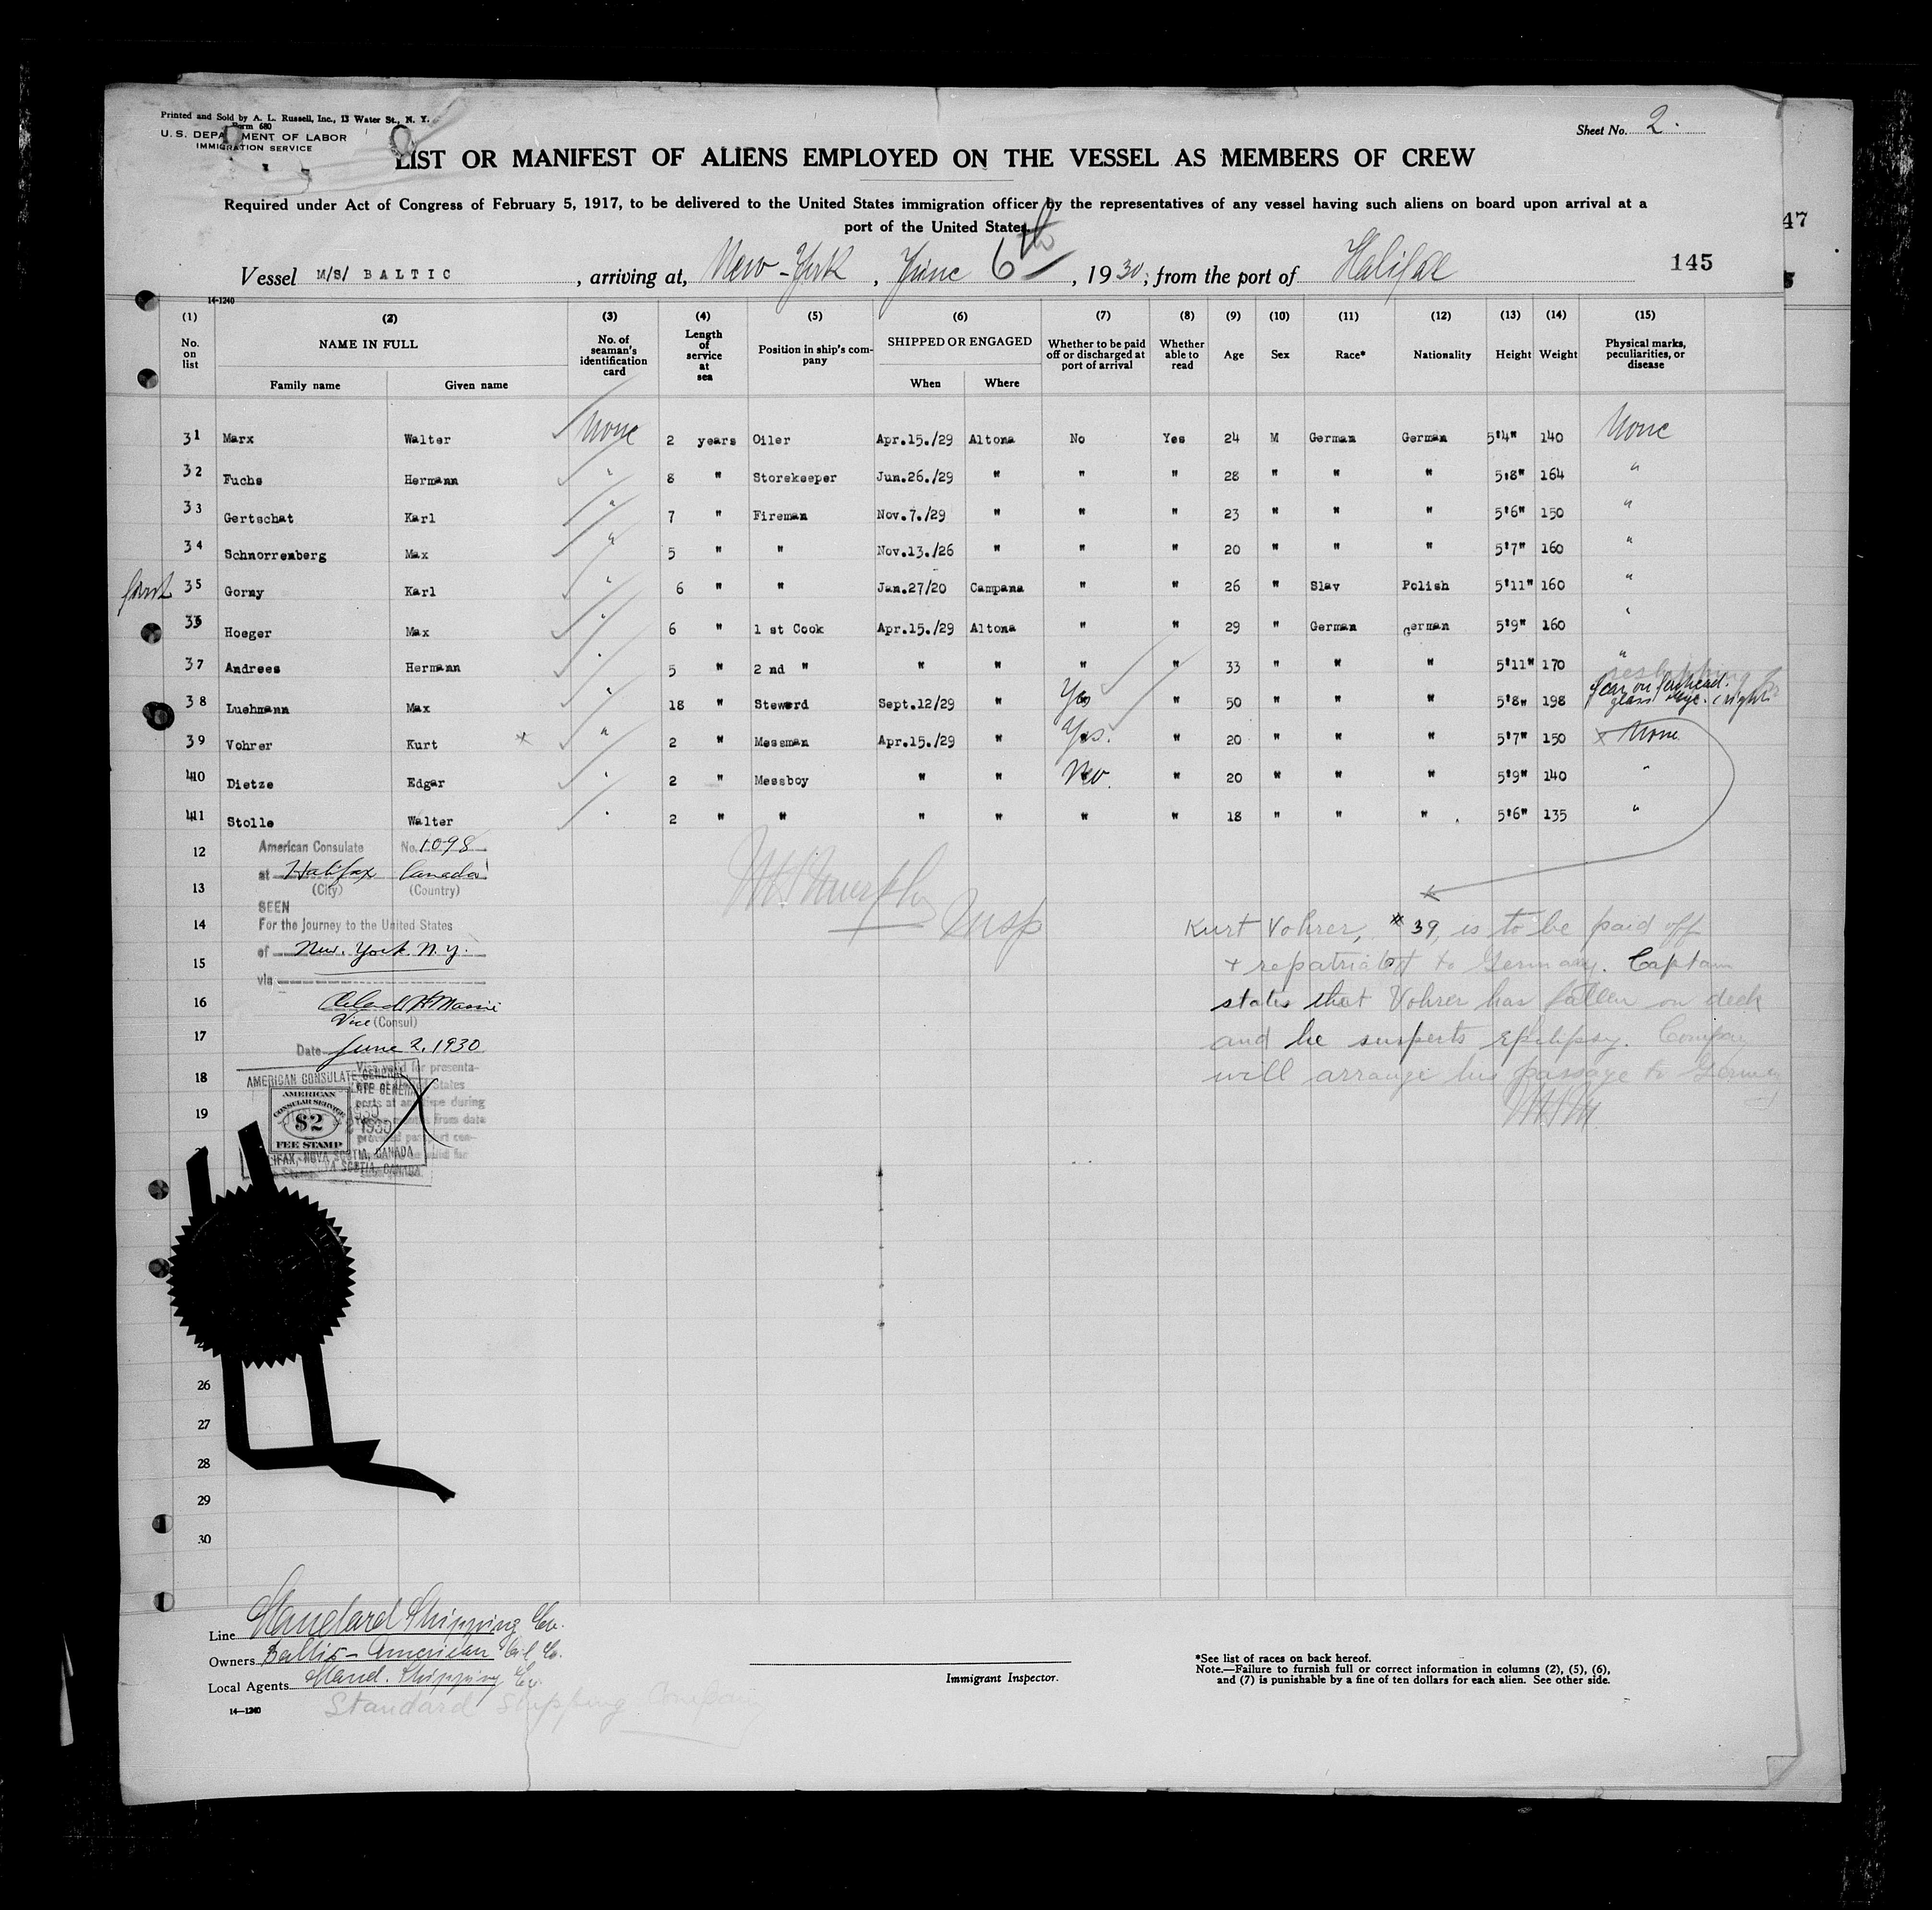 Printed and Sold by A. L. Russell, Inc., 13 Water St., N. Y.
Form 680
U. S. DEPARTMENT OF LABOR
IMMIGRATION SERVICE
Sheet No. 2.
LIST OR MANIFEST OF ALIENS EMPLOYED ON THE VESSEL AS MEMBERS OF CREW
Required under Act of Congress of February 5, 1917, to be delivered to the United States immigration officer by the representatives of any vessel having such aliens on board upon arrival at a
port of the United States.
47
Vessel M/S/ BALTIC , arriving at, New-York , June 6th , 1930 ; from the port of Halifax
145
14-1240
(1) (2) (3) (4) (5) (6) (7) (8) (9) (10) (11) (12) (13) (14) (15)
No. on list NAME IN FULL No. of seaman's identification card Length of service at sea Position in ship's company SHIPPED OR ENGAGED Whether to be paid off or discharged at port of arrival Whether able to read Age Sex Race* Nationality Height Weight Physical marks, peculiarities, or disease
Family name Given name When Where
31 Marx Walter None 2 years Oiler Apr.15./29 Altona No Yes 24 M German German 5'4" 140 None
32 Fuchs Hermann " 8 " Storekeeper Jun.26./29 " " " 28 " " " 5.8" 164 "
33 Gertschat Karl " 7 " Fireman Nov.7./29 " " " 23 " " " 5'6" 150 "
34 Schnorrenberg Max " 5 " " Nov.13./26 " " " 20 " " " 5'7" 160 "
35 Gorny Karl " 6 " " Jan.27/20 Campana " " 26 " Slav Polish 5'11" 160 "
36 Hoeger Max " 6 " 1 st Cook Apr.15./29 Altona " " 29 " German German 5'9" 160 "
37 Andrees Hermann " 5 " 2 nd " " " " " 33 " " " 5'11" 170 "
38 Luehmann Max " 18 " Steward Sept.12/29 " Yes " 50 " " " 5'8" 198 Scar on forehead. glass eye. (right
39 Vohrer Kurt " 2 " Messman Apr.15./29 " Yes. " 20 " " " 5'7" 150 x None
40 Dietze Edgar " 2 " Messboy " " No. " 20 " " " 5'9" 140 "
41 Stolle Walter " 2 " " " " " " 18 " " " 5'6" 135 "
12 American Consulate No. 1098
at Halifax Canada
13 (City) (Country)
SEEN
14 For the journey to the United States
of New. York N.Y.
15
via
16
Vice (Consul)
17
Date June 2, 1930
18
19
AMERICAN CONSULATE GENERAL
AMERICAN
CONSULAR SERVICE
$2
FEE STAMP
2 1930
HALIFAX, NOVA SCOTIA, CANADA
W H Murphy
Insp
Kurt Vohrer, #39, is to be paid off
+ repatriated to Germany. Captain
states that Vohrer has fallen on deck
and he suspects epilepsy. Company
will arrange his passage to Germany
26
27
28
29
30
Line Standard Shipping Co.
Owners Baltic-American Oil Co.
Local Agents Stand. Shipping Co.
Standard Shipping Company
14-1240
Immigrant Inspector.
*See list of races on back hereof.
Note.—Failure to furnish full or correct information in columns (2), (5), (6),
and (7) is punishable by a fine of ten dollars for each alien. See other side.